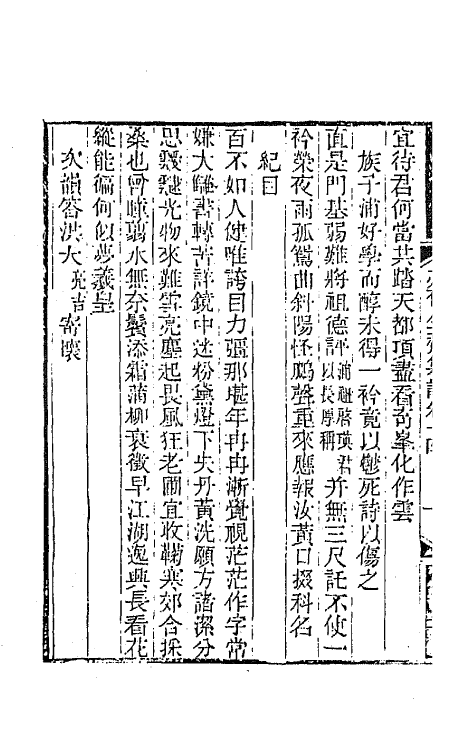 宜待君何當共踏天都頂盡看奇峯化作雲
族子浦好學而醇未得一衿竟以鬱死詩以傷之
直是門基弱難將祖德評浦祖啓瑛君以長厚稱并無三尺託不使一
衿榮夜雨孤鴛曲斜陽怪鵬聲重來應報汝黃口掇科名
紀目
百不如人健唯誇目力彊那堪年冉冉漸覺視茫茫作字常
嫌大讎書轉苦詳鏡中迷粉黛燈下失丹黃洗願方諸潔分
思靉靆光物來難雪亮塵起畏風狂老圃宜收鞠寒郊合採
桑也曾瞳翦水無奈鬢添霜蒲柳衰徵早江湖逸興長看花
縱能徧何似夢羲皇
次韻答洪大亮吉寄懷